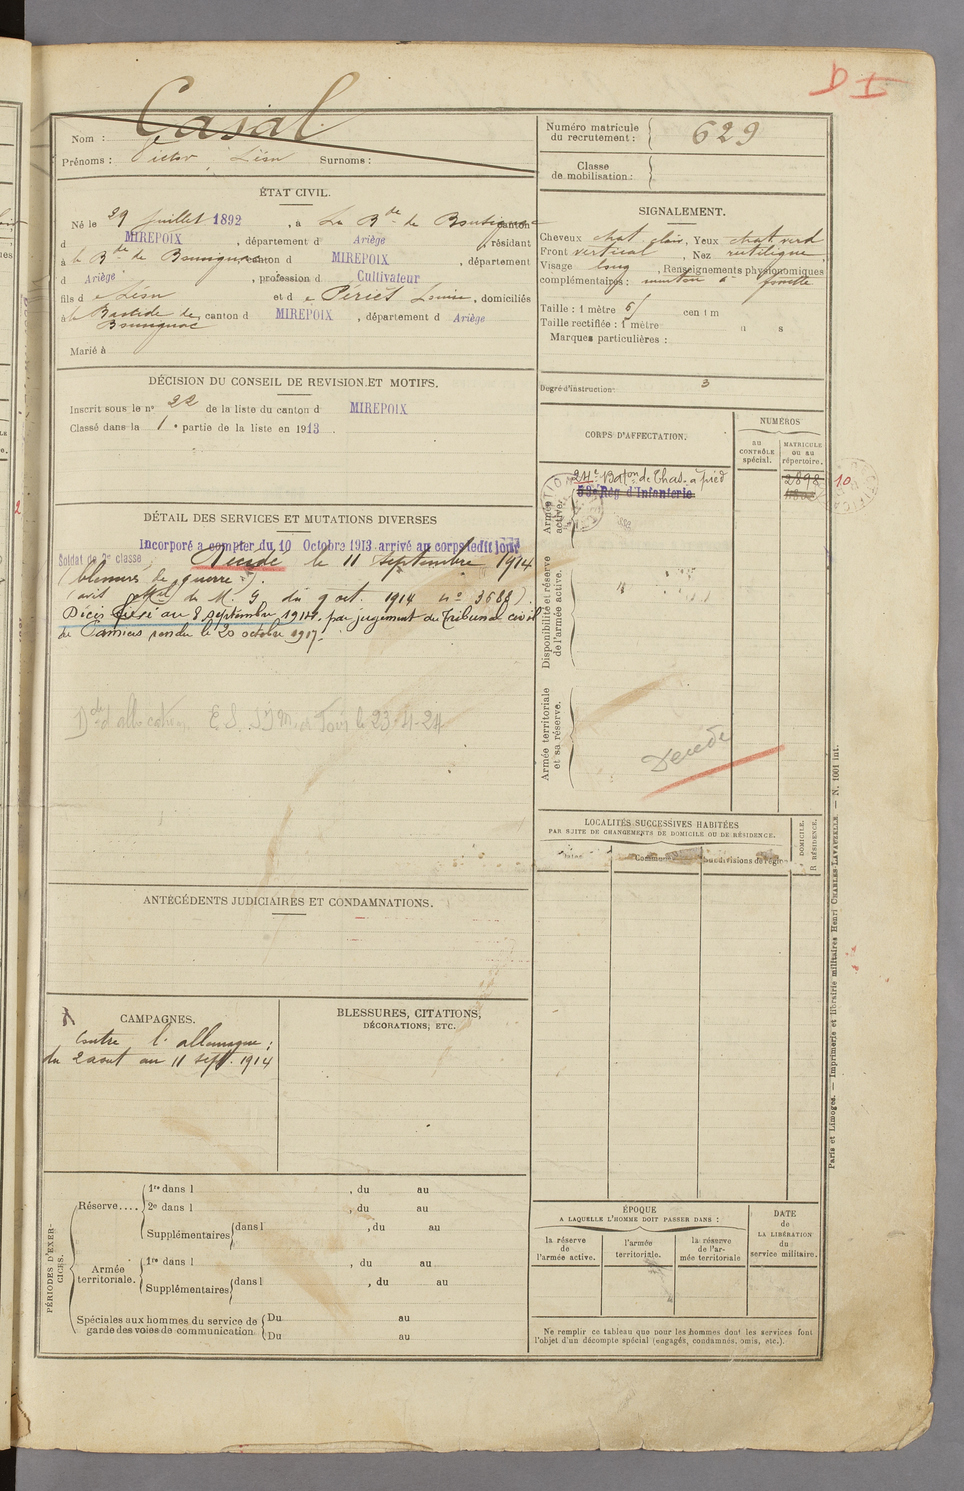 D I
Nom : Casal
Prénoms : Victor, Léon Surnoms :
Numéro matricule
du recrutement : 629
Classe
de mobilisation :
ÉTAT CIVIL.
Né le 29 juillet 1892, à La B.de de Bousignac canton
d MIREPOIX, département d Ariège, résidant
à la B.de de Bousignac, canton d MIREPOIX, département
d Ariège, profession d Cultivateur
fils d e Léon et d e Périès Louise, domiciliés
à la Bastide de canton d MIREPOIX, département d Ariège
Bousignac
Marié à
SIGNALEMENT.
Cheveux chat. clair, Yeux chat. verd
Front vertical, Nez rectiligne
Visage long, Renseignements physionomiques
complémentaires : menton à fossette
Taille : 1 mètre 61 centim
Taille rectifiée : 1 mètre
Marques particulières :
Degré d'instruction : 3
DÉCISION DU CONSEIL DE REVISION ET MOTIFS.
Inscrit sous le n° 22 de la liste du canton d MIREPOIX
Classé dans la 1e partie de la liste en 1913.
CORPS D'AFFECTATION.
NUMÉROS
au
CONTRÔLE
spécial.
MATRICULE
ou au
répertoire.
Armée
active.
24e Baton de Chas. à pied
53e Rég d'Infanterie
2898
10
Disponibilité et réserve
de l'armée active.
Armée territoriale
et sa réserve.
Décédé
DÉTAIL DES SERVICES ET MUTATIONS DIVERSES
Incorporé a compter du 10 Octobre 1913 arrivé au corps ledit jour
Soldat de 2e classe
Décédé le 11 septembre 1914
(blessures de guerre).
(avis de M. G du 9 oct. 1914 no 3688).
Décès fixé au 8 septembre 1914, par jugement du Tribunal civil
de Pamiers rendu le 20 octobre 1917.
le 23-4-24
LOCALITÉS SUCCESSIVES HABITÉES
PAR SUITE DE CHANGEMENTS DE DOMICILE OU DE RÉSIDENCE.
Dates
Communes
Subdivisions de région
DOMICILE.
R RÉSIDENCE.
ANTÉCÉDENTS JUDICIAIRES ET CONDAMNATIONS.
CAMPAGNES.
Contre l'allemagne :
du 2 aout au 11 sept. 1914
BLESSURES, CITATIONS,
DÉCORATIONS, ETC.
PÉRIODES D'EXERCICES.
Réserve....
1re dans l , du au
2e dans l , du au
Supplémentaires dans l , du au
Armée
territoriale.
1re dans l , du au
Supplémentaires dans l , du au
Spéciales aux hommes du service de
garde des voies de communication.
Du au
Du au
ÉPOQUE
A LAQUELLE L'HOMME DOIT PASSER DANS :
la réserve
de
l'armée active.
l'armée
territoriale.
la réserve
de l'ar-
mée territoriale
DATE
de
LA LIBÉRATION
du
service militaire.
Ne remplir ce tableau que pour les hommes dont les services font
l'objet d'un décompte spécial (engagés, condamnés, omis, etc.).
Paris et Limoges. — Imprimerie et librairie militaires Henri CHARLES-LAVAUZELLE. — N. 1001 int.